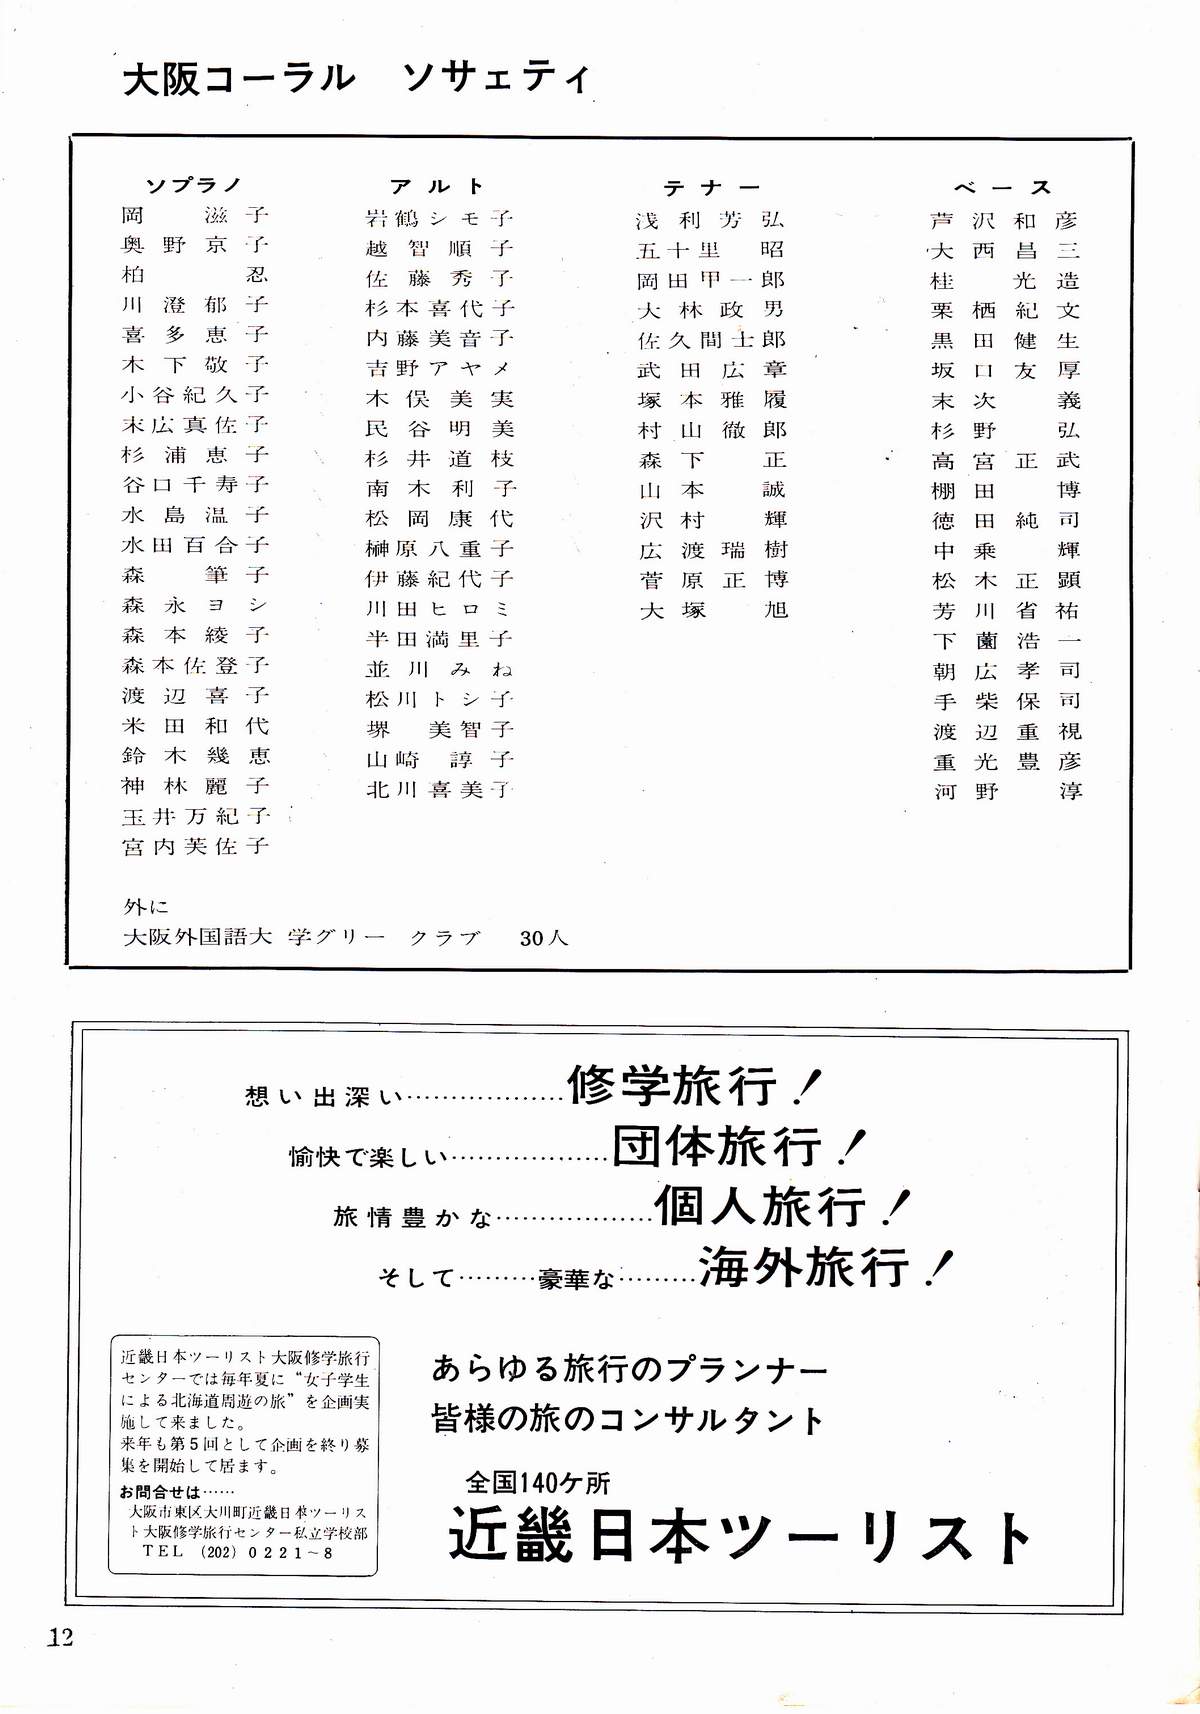 大阪コーラル ソサェティ
ソプラノ
岡滋子
奥野京子
柏忍
川澄郁子
喜多恵子
木下敬子
小谷紀久子
末広真佐子
杉浦恵子
谷口千寿子
水島温子
水田百合子
森筆子
森永ヨシ
森本綾子
森本佐登子
渡辺喜子
米田和代
鈴木幾恵
神林麗子
玉井万紀子
宮内芙佐子
アルト
岩鶴シモ子
越智順子
佐藤秀子
杉本喜代子
内藤美音子
吉野アヤメ
木俣美実
民谷明美
杉井道枝
南木利子
松岡康代
榊原八重子
伊藤紀代子
川田ヒロミ
半田満里子
並川みね
松川トシ子
堺美智子
山崎諄子
北川喜美子
テナー
浅利芳弘
五十里昭
岡田甲一郎
大林政男
佐久間士郎
武田広章
塚本雅履
村山徹郎
森下正
山本誠
沢村輝
広渡瑞樹
菅原正博
大塚旭
ベース
芦沢和彦
大西昌三
桂光造
栗栖紀文
黒田健生
坂口友厚
末次義
杉野弘
高宮正武
棚田博
徳田純司
中乗輝
松木正顕
芳川省祐
下薗浩一
朝広孝司
手柴保司
渡辺重視
重光豊彦
河野淳
外に
大阪外国語大学グリー クラブ 30人
想い出深い………………修学旅行！
愉快で楽しい………………団体旅行！
旅情豊かな………………個人旅行！
そして………豪華な………海外旅行！
近畿日本ツーリスト大阪修学旅行
センターでは毎年夏に“女子学生
による北海道周遊の旅”を企画実
施して来ました。
来年も第5回として企画を終り募
集を開始して居ます。
お問合せは……
大阪市東区大川町近畿日本ツーリス
ト大阪修学旅行センター私立学校部
TEL (202) 0221～8
あらゆる旅行のプランナー
皆様の旅のコンサルタント
全国140ケ所
近畿日本ツーリスト
12